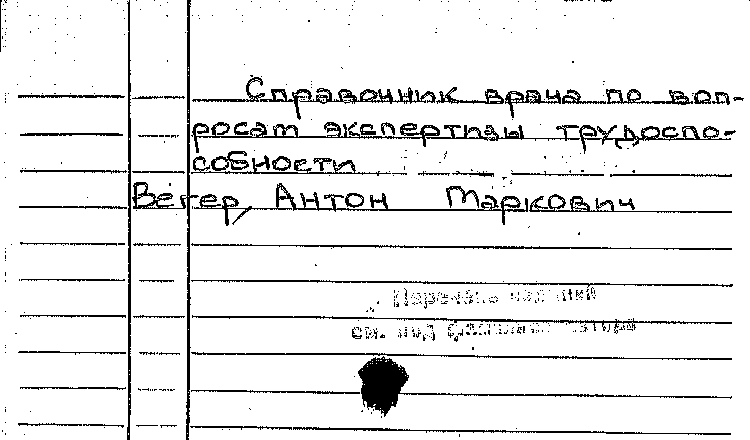 Справочник врача по воп-
росам экспертизы трудоспо-
собности
Вегер, Антон Маркович
Перечень изданий
см. под фамилией автора